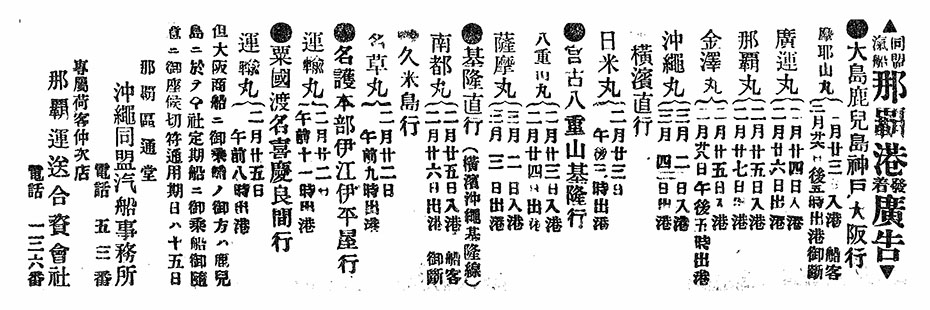 ▲同盟汽船那覇港發着廣告▼
●大島鹿兒島神戸大阪行
摩耶山丸 二月廿三 入港 船客 二月廿六 後五時出港 御斷
廣運丸 二月廿四日入港 二月廿六日出港
那覇丸 二月廿五日入港 二月廿七日出港
金澤丸 二月廿五日入港 二月廿八日午後五時出港
沖繩丸 三月二日入港 三月四日出港
横濱直行
日米丸 二月廿三日 午後三時出港
●宮古八重山基隆行
八重山丸 二月廿三日入港 二月廿四日出港
薩摩丸 三月一日入港 三月三日出港
●基隆直行(横濱沖繩基隆線)
南都丸 二月廿五日入港 船客 二月廿六日出港 御斷
●久米島行
名草丸 二月廿二日 午前九時出港
●名護本部伊江伊平屋行
運輸丸 二月廿二日 午前十一時出港
●粟國渡名喜慶良間行
運輸丸 二月廿五日 午前八時出港
但大阪商船ニ御乘船ノ御方ハ鹿兒
島ニ於テ今社定期船ニ御乘船御随
意ニ御座候切符通用期日ハ十五日
那覇區通堂
沖繩同盟汽船事務所
電話 五三番
專屬荷客仲次店
那覇運送合資會社
電話 一三六番